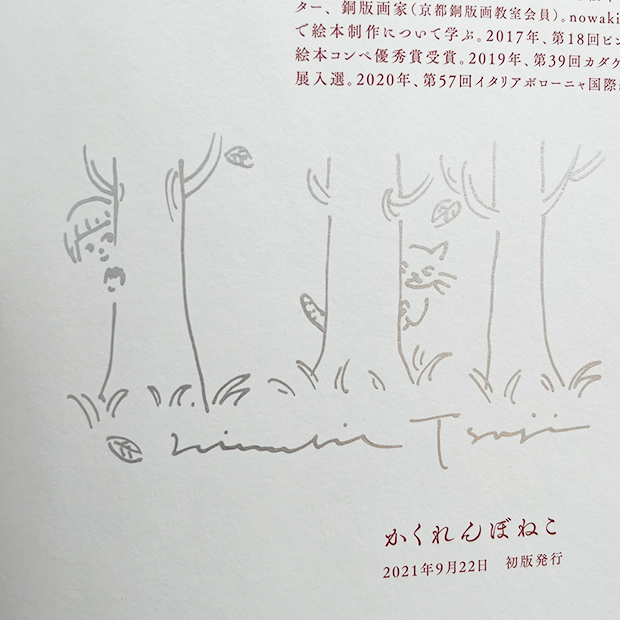 ター、銅版画家(京都銅版画教室会員)。nowaki
で絵本制作について学ぶ。2017年、第18回ピン
絵本コンペ優秀賞受賞。2019年、第39回カダケ
展入選。2020年、第57回イタリアボローニャ国際
Tsuji
かくれんぼねこ
2021年9月22日 初版発行